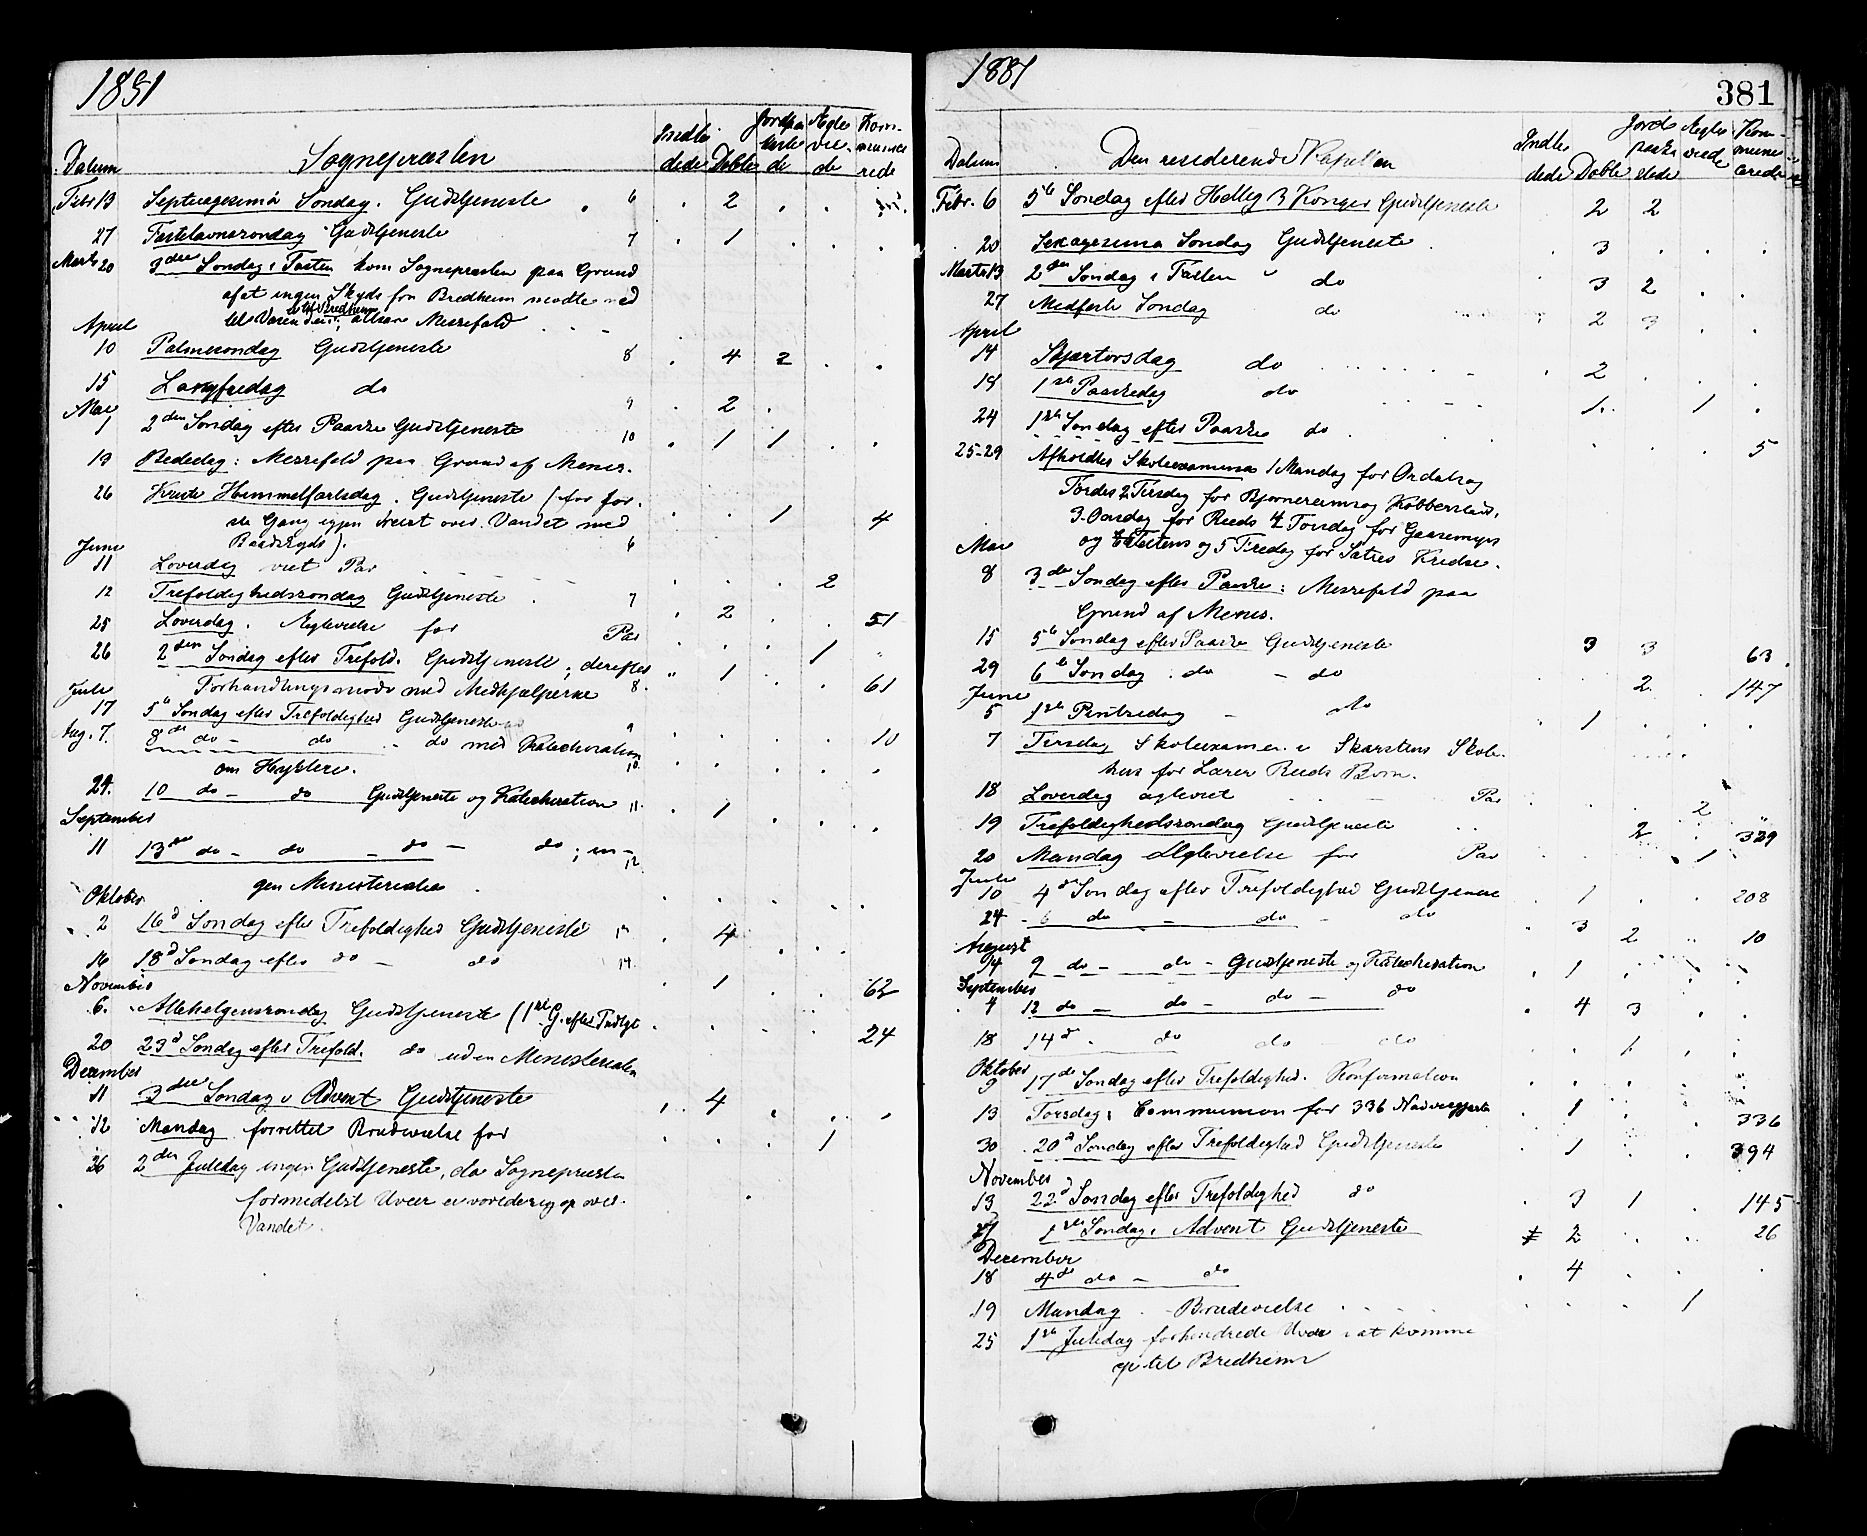 1881
Datum Sognepræsten Indlededede Døbte Jordpaakastede Ægteviede Kommunicerede
Febr 13 Septuagesima Søndag. Gudstjeneste 6 2
27 Fastelavnssøndag Gudstjeneste 7 1
Marts 20 3die Søndag i Fasten kom Sognepræsten paa Grund
af at ingen Skyds fra Bredheim mødte ned
til Vasenden; altsaa Messefald
April
10 Palmesøndag Gudstjeneste 8 4 2
15 Langfredag do 9 2
Mai
1 2den Søndag efter Paaske Gudstjeneste 10 1 1
13 Bededag: Messefald paa Grund af Menis.
26 Kristi Himmelfartsdag. Gudstjeneste (for før-
ste Gang igjen reist over Vandet med 1 4
Baadskyds). 6
Juni
11 Løverdag viet Par 2
12 Trefoldighedssøndag Gudstjeneste 7 2 51
25 Løverdag. Ægtevielse for Par 1
26 2den Søndag efter Trefold. Gudstjeneste; derefter 1 61
Forhandlingsmøde med Medhjælperne 8.
Juli
17 5te Søndag efter Trefoldighed Gudstjeneste 9 10
Aug. 7. 8de do - do - do med Katechisation
om Hyklere. 10
21. 10 do - do Gudstjeneste og Katechisation 11. 1
September
11 13de do - do - do - do; in- 12
gen Ministerialia
Oktober
2 16d Søndag efter Trefoldighed Gudstjeneste 13 4
16 18d Søndag efter do - do 14.
November 1 62
6. Allehelgenssøndag Gudstjeneste (1ste G. efter Indlgt
20 23d Søndag efter Trefold. do uden Ministerialia 24
December
11 3die Søndag i Advent Gudstjeneste 4
12 Mandag forrettet Brudevielse for 1
26 2den Juledag ingen Gudstjeneste, da Sognepræsten
formedelst Uveir ei vovede sig op over
Vandet.
1881 381
Datum Den residerende Kapellan Indlededede Døbte Jordpaakastede Ægteviede Kommunicerede
Febr. 6 5te Søndag efter Hellig 3 Konger Gudstjeneste 2 2
20 Sexagesima Søndag Gudstjeneste 3
Marts 13 2den Søndag i Fasten do 3 2
27 Midfaste Søndag do 2 3
April
14 Skjærtorsdag do 2
18 1ste Paaskedag do 1 1
24 1ste Søndag efter Paaske do 5
25-29 Afholdtes Skoleexamina 1 Mandag for Ordal og
Fordes 2 Tirsdag for Bjørnereim og Kobberstad,
3. Onsdag for Reeds 4 Torsdag for Gaasemyr
og Eidstens og 5 Fredag for Sætres Kredse.
Mai
8 3die Søndag efter Paaske: Messefald paa
Grund af Menis.
15 5te Søndag efter Paaske Gudstjeneste 3 3 63
29 6te Søndag do - do 2 147
Juni
5 1ste Pintsedag - do 1
7 Tirsdag Skoleexamen i Skarstens Skole-
hus for Lærer Reeds Børn.
18 Løverdag ægteviet Par 2
19 Trefoldighedssøndag Gudstjeneste 2 329
20 Mandag Ægtevielse for Par 1
Juli
10 4de Søndag efter Trefoldighed Gudstjeneste 1 208
24 6 do - do - do 3 2 10
August
14 9 do - do - Gudstjeneste og Katechisation 1
September
4 12 do - do - do - do 4 3
18 14d do do do 1
Oktober
9 17de Søndag efter Trefoldighed. Konfirmation
13 Torsdag: Communion for 336 Nadvergjæster 1 336
30 20d Søndag efter Trefoldighed Gudstjeneste 1 394
November
13 22d Søndag efter Trefoldighed do 3 1 145
27 1ste Søndag i Advent Gudstjeneste 2 26
December
18 4de do - do 4
19 Mandag. Brudevielse 1
25 1ste Juledag forhindrede Uveir i at komme
op til Bredheim